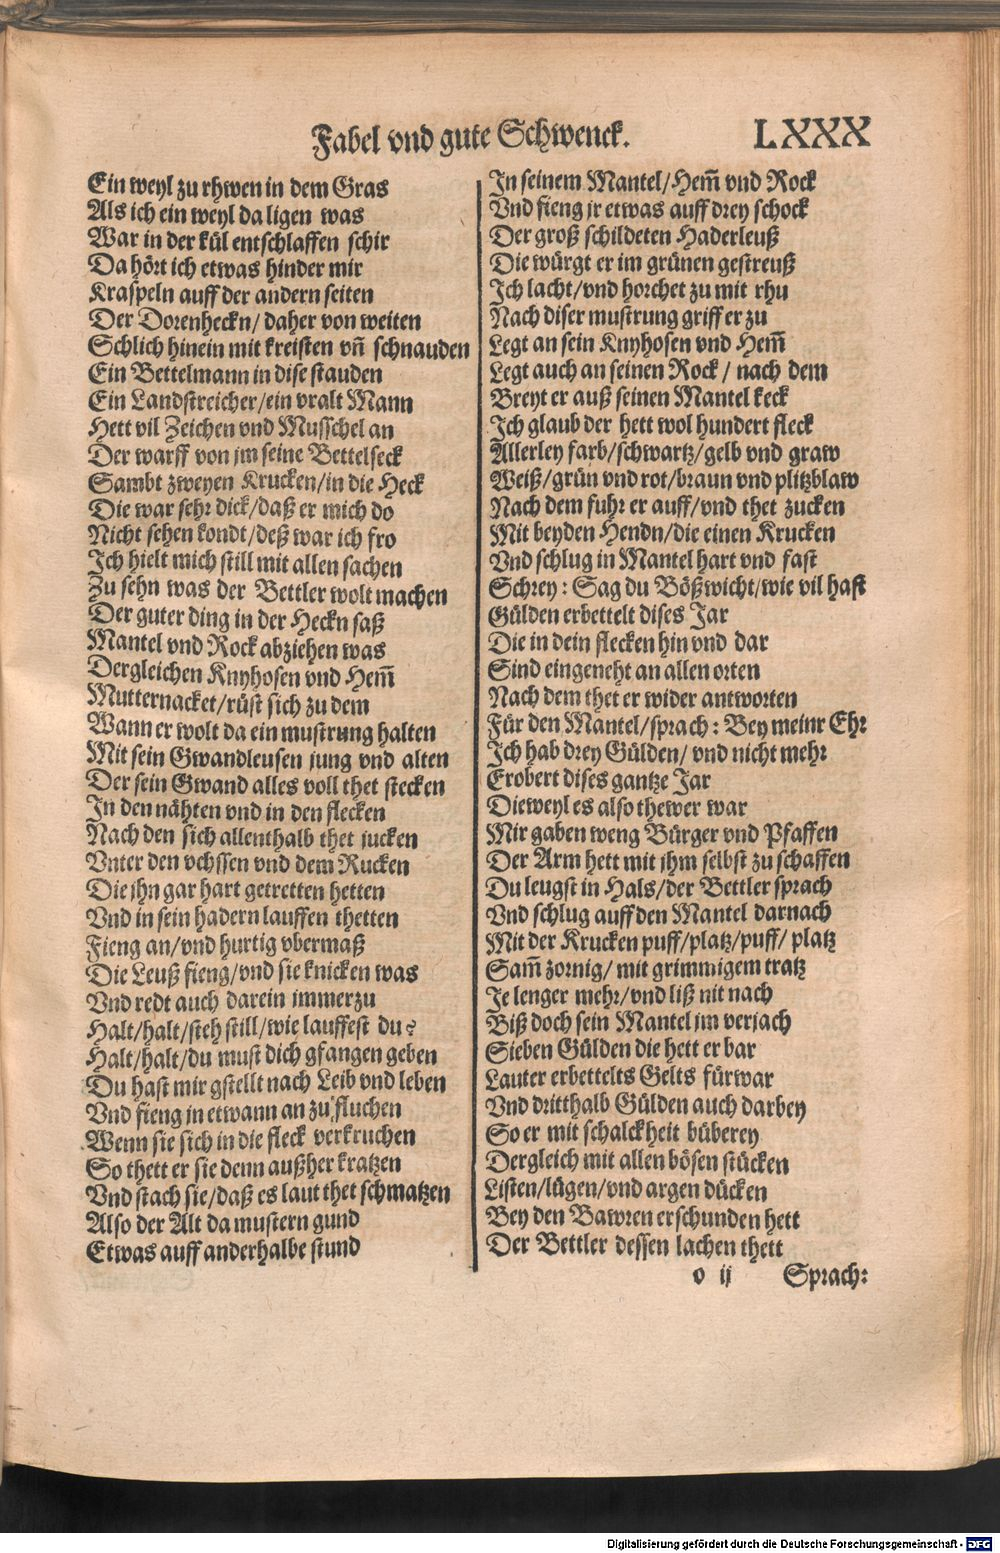 Fabel vnd gute Schwenck. LXXX
Ein weyl zu rhwen in dem Gras
Als ich ein weyl da ligen was
War in der kül entschlaffen schir
Da hört ich etwas hinder mir
Kraspeln auff der andern seiten
Der Dorenheckn/ daher von weiten
Schlich hinein mit kreisten vn̄ schnauden
Ein Bettelmann in dise stauden
Ein Landstreicher/ein vralt Mann
Hett vil Zeichen vnd Musschel an
Der warff von jm seine Bettelseck
Sambt zweyen Krucken/in die Heck
Die war sehr dick/daß er mich do
Nicht sehen kondt/deß war ich fro
Ich hielt mich still mit allen sachen
Zu sehn was der Bettler wolt machen
Der guter ding in der Heckn saß
Mantel vnd Rock abziehen was
Dergleichen Knyhosen vnd Hem̄
Mutternacket/rüst sich zu dem
Wann er wolt da ein mustrung halten
Mit sein Gwandleusen jung vnd alten
Der sein Gwand alles voll thet stecken
In den nähten vnd in den flecken
Nach den sich allenthalb thet jucken
Vnter den vchssen vnd dem Rucken
Die jhn gar hart getretten hetten
Vnd in sein hadern lauffen thetten
Fieng an/vnd hurtig vbermaß
Die Leuß fieng/vnd sie knicken was
Vnd redt auch darein jmmerzu
Halt/halt/steh still/wie lauffest du?
Halt/halt/du must dich gfangen geben
Du hast mir gstellt nach Leib vnd leben
Vnd fieng in etwann an zu fluchen
Wenn sie sich in die fleck verkruchen
So thett er sie denn außher kratzen
Vnd stach sie/daß es laut thet schmatzen
Also der Alt da mustern gund
Etwas auff anderhalbe stund
In seinem Mantel/Hem̄ vnd Rock
Vnd fieng jr etwas auff drey schock
Der groß schildeten Haderleuß
Die würgt er im grünen gestreuß
Ich lacht/vnd horchet zu mit rhu
Nach diser mustrung griff er zu
Legt an sein Knyhosen vnd Hem̄
Legt auch an seinen Rock / nach dem
Breyt er auß seinen Mantel keck
Ich glaub der hett wol hundert fleck
Allerley farb/schwartz/gelb vnd graw
Weiß/grün vnd rot/braun vnd plitzblaw
Nach dem fuhr er auff/vnd thet zucken
Mit beyden Hendn/die einen Krucken
Vnd schlug in Mantel hart vnd fast
Schrey: Sag du Bößwicht/wie vil hast
Gülden erbettelt dises Jar
Die in dein flecken hin vnd dar
Sind eingeneht an allen orten
Nach dem thet er wider antworten
Für den Mantel/sprach: Bey meinr Ehr
Ich hab drey Gülden/ vnd nicht mehr
Erobert dises gantze Jar
Dieweyl es also thewer war
Mir gaben weng Bürger vnd Pfaffen
Der Arm hett mit jhm selbst zu schaffen
Du leugst in Hals/der Bettler sprach
Vnd schlug auff den Mantel darnach
Mit der Krucken puff/platz/puff/ platz
Sam̄ zornig/ mit grimmigem tratz
Je lenger mehr/vnd liß nit nach
Biß doch sein Mantel jm verjach
Sieben Gülden die hett er bar
Lauter erbettelts Gelts fürwar
Vnd dritthalb Gülden auch darbey
So er mit schalckheit büberey
Dergleich mit allen bösen stücken
Listen/lügen/vnd argen dücken
Bey den Bawren erschunden hett
Der Bettler dessen lachen thett
o ij Sprach:
Digitalisierung gefördert durch die Deutsche Forschungsgemeinschaft - DFG